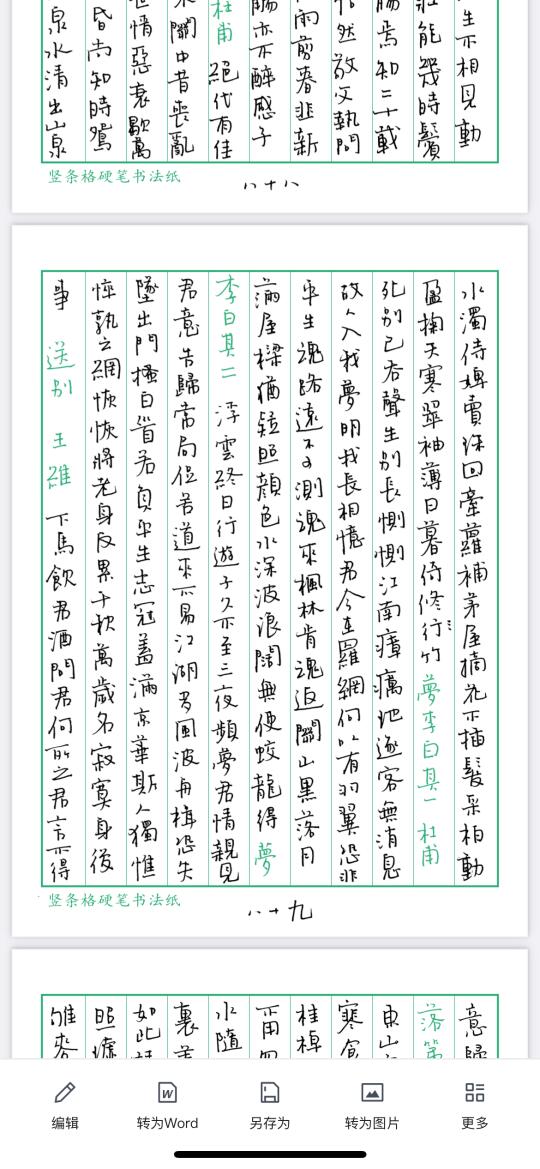 生不相見動
壯能幾時鬢
腸焉知二十載
怡然敬父執問
雨剪春韭新
觴亦不醉感子
杜甫 絕代有佳
關中昔喪亂
世情惡衰歇萬
昏尚知時鴛
泉水清出山泉
竖条格硬笔书法纸
八十八
水濁侍婢賣珠回牽蘿補茅屋摘花不插髮采柏動
盈掬天寒翠袖薄日暮倚修行竹 夢李白其一 杜甫
死別已吞聲生別長惻惻江南瘴癘地逐客無消息
故人入我夢明我長相憶君今在羅網何以有羽翼恐非
平生魂路遠不可測魂來楓林青魂返關山黑落月
滿屋樑猶疑照顏色水深波浪闊無使蛟龍得 夢
李白其二 浮雲終日行遊子久不至三夜頻夢君情親見
君意告歸常局促苦道來不易江湖多風波舟楫恐失
墜出門搔白首若負平生志冠蓋滿京華斯人獨憔
悴孰云網恢恢將老身反累千秋萬歲名寂寞身後
事 送別 王維 下馬飲君酒問君何所之君言不得
竖条格硬笔书法纸
八十九
意歸
落第
東山
寒食
桂棹
水隨
裏
如此
照墟
雉
编辑
转为Word
另存为
转为图片
更多